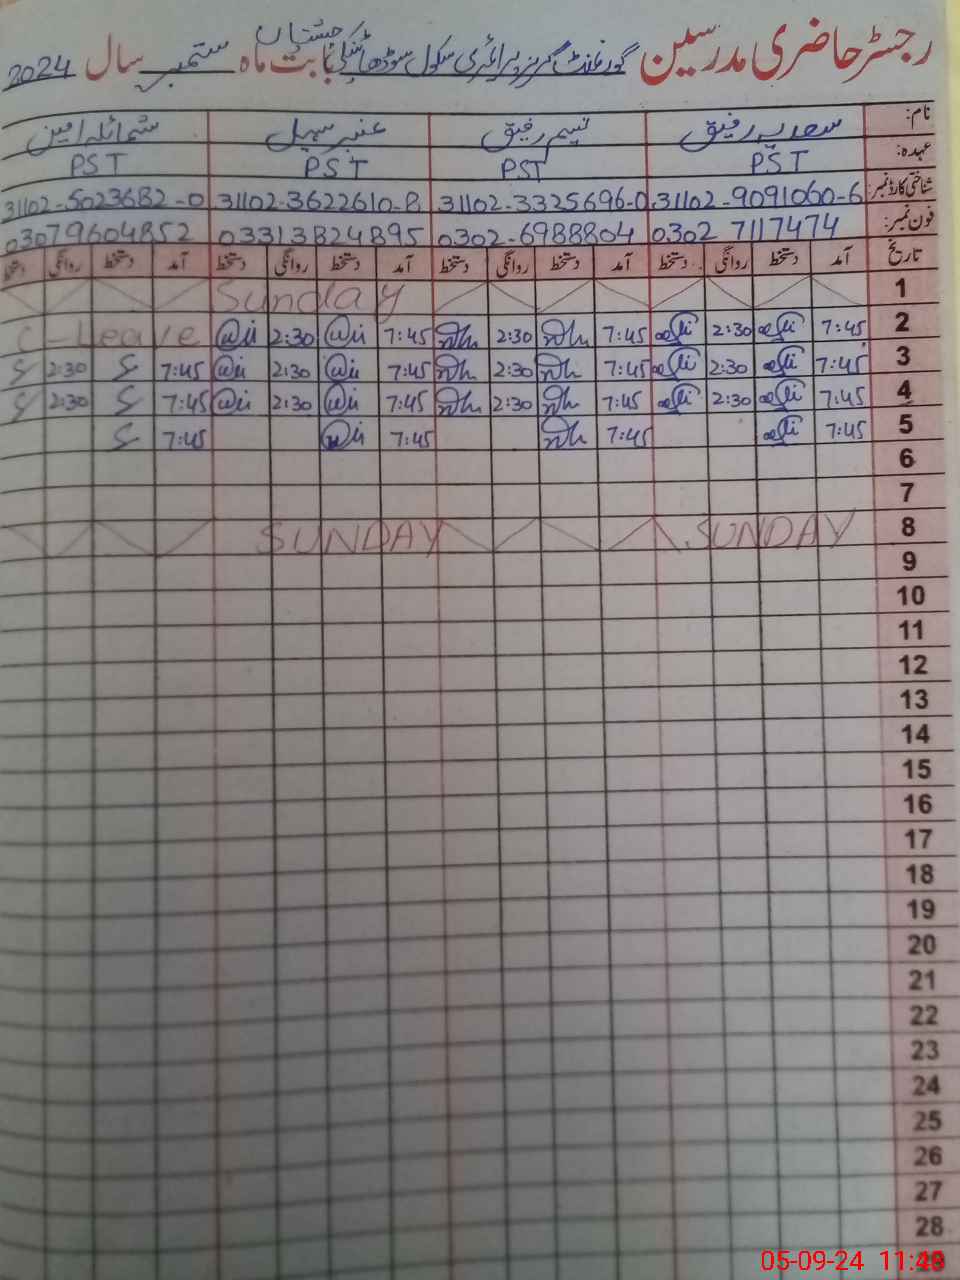 رجسٹر حاضری مدرسین گورنمنٹ گرلز پرائمری سکول سوڈھا جشتیاں بابت ماہ ستمبر سال 2024
نام: سعدیہ رفیق نسیم رفیق عنبر سہیل شمائلہ امین
عہدہ: PST PST PST PST
شناختی کارڈ نمبر: 31102-9091060-6 31102-3325696-0 31102-3622610-8 31102-5023682-0
فون نمبر: 0302 7117474 0302-6988804 03313824895 03079604852
تاریخ آمد دستخط روانگی دستخط آمد دستخط روانگی دستخط آمد دستخط روانگی دستخط آمد دستخط روانگی دستخط
1 Sunday
2 7:45 2:30 7:45 2:30 7:45 2:30 C-Leave
3 7:45 2:30 7:45 2:30 7:45 2:30 7:45 2:30
4 7:45 2:30 7:45 2:30 7:45 2:30 7:45 2:30
5 7:45 7:45 7:45 7:45
6
7
8 SUNDAY SUNDAY
9
10
11
12
13
14
15
16
17
18
19
20
21
22
23
24
25
26
27
28
29
05-09-24